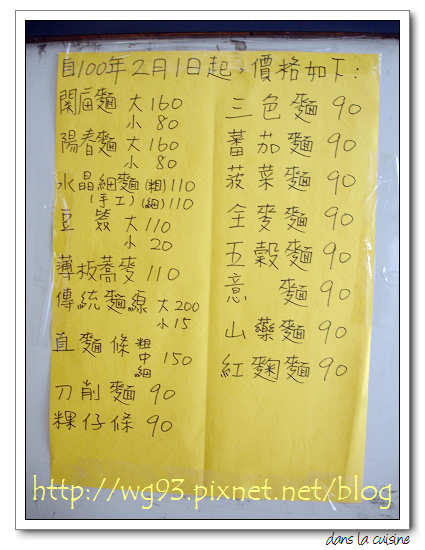 自100年2月1日起，價格如下：
関庙麵 大160
小 80
陽春麵 大160
小 80
水晶細麵(粗)110
(手工)(細)110
豆簽 大110
小 20
薄板蕎麥 110
傳統麵線 大200
小15
直麵條 粗
中 150
細
刀削麵 90
粿仔條 90
三色麵 90
蕃茄麵 90
菠菜麵 90
全麥麵 90
五穀麵 90
意 麵 90
山藥麵 90
紅麴麵 90
http://wg93.pixnet.net/blog
dans la cuisine